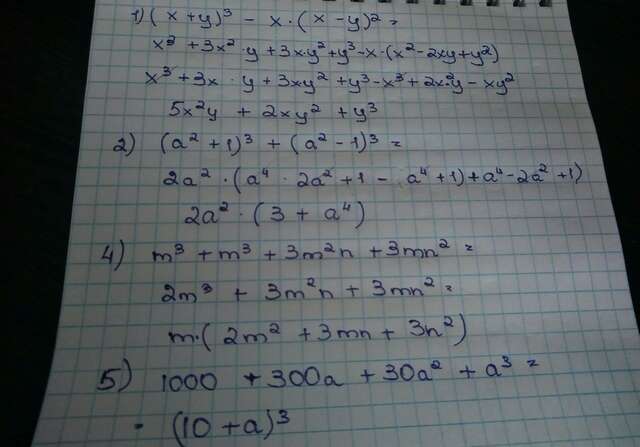 1) (x + y)³ - x · (x - y)² =
x³ + 3x² · y + 3x·y² + y³ - x · (x² - 2xy + y²)
x³ + 3x · y + 3xy² + y³ - x³ + 2x²y - xy²
5x²y + 2xy² + y³
2) (a² + 1)³ + (a² - 1)³ =
2a² · (a⁴ · 2a² + 1 - a⁴ + 1) + a⁴ - 2a² + 1)
2a² · (3 + a⁴)
4) m³ + m³ + 3m²n + 3mn² =
2m³ + 3m²n + 3mn² =
m · (2m² + 3mn + 3n²)
5) 1000 + 300a + 30a² + a³ =
· (10 + a)³